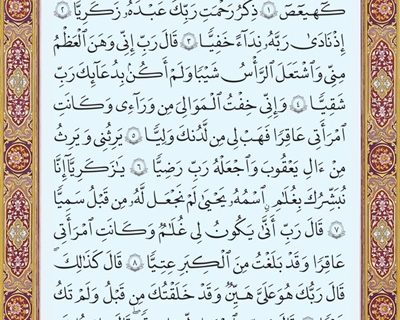 كٓهيعٓصٓ ١ ذِكْرُ رَحْمَتِ رَبِّكَ عَبْدَهُۥ زَكَرِيَّآ ٢
إِذْ نَادَىٰ رَبَّهُۥ نِدَآءً خَفِيًّا ٣ قَالَ رَبِّ إِنِّى وَهَنَ ٱلْعَظْمُ
مِنِّى وَٱشْتَعَلَ ٱلرَّأْسُ شَيْبًا وَلَمْ أَكُنۢ بِدُعَآئِكَ رَبِّ
شَقِيًّا ٤ وَإِنِّى خِفْتُ ٱلْمَوَٰلِىَ مِن وَرَآءِى وَكَانَتِ
ٱمْرَأَتِى عَاقِرًا فَهَبْ لِى مِن لَّدُنكَ وَلِيًّا ٥ يَرِثُنِى وَيَرِثُ
مِنْ ءَالِ يَعْقُوبَ وَٱجْعَلْهُ رَبِّ رَضِيًّا ٦ يَٰزَكَرِيَّآ إِنَّا
نُبَشِّرُكَ بِغُلَٰمٍ ٱسْمُهُۥ يَحْيَىٰ لَمْ نَجْعَل لَّهُۥ مِن قَبْلُ سَمِيًّا
٧ قَالَ رَبِّ أَنَّىٰ يَكُونُ لِى غُلَٰمٌ وَكَانَتِ ٱمْرَأَتِى
عَاقِرًا وَقَدْ بَلَغْتُ مِنَ ٱلْكِبَرِ عِتِيًّا ٨ قَالَ كَذَٰلِكَ
قَالَ رَبُّكَ هُوَ عَلَىَّ هَيِّنٌ وَقَدْ خَلَقْتُكَ مِن قَبْلُ وَلَمْ تَكُ